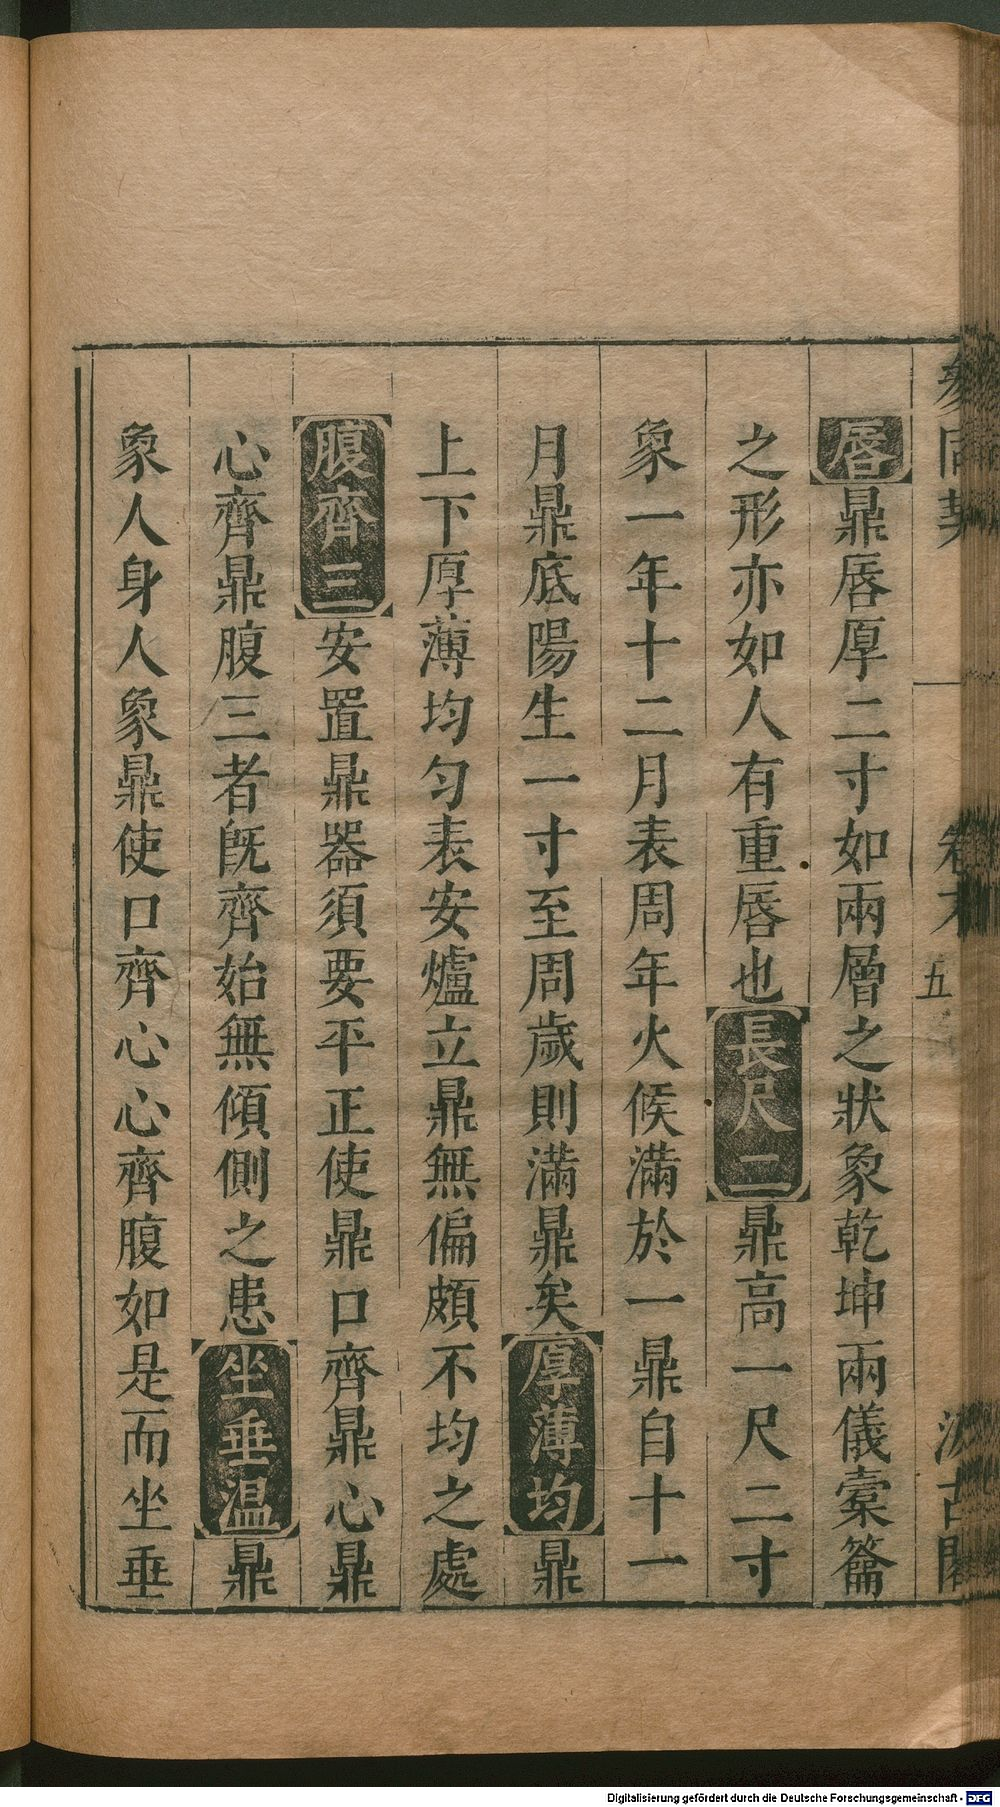 參同契 卷下 五 汲古閣
唇鼎唇厚二寸如兩層之狀象乾坤兩儀橐籥
之形亦如人有重唇也長尺二鼎高一尺二寸
象一年十二月表周年火候滿於一鼎自十一
月鼎底陽生一寸至周歲則滿鼎矣厚薄均鼎
上下厚薄均勻表安爐立鼎無偏頗不均之處
腹齊三安置鼎器須要平正使鼎口齊鼎心鼎
心齊鼎腹三者旣齊始無傾側之患坐垂温鼎
象人身人象鼎使口齊心心齊腹如是而坐垂
Digitalisierung gefördert durch die Deutsche Forschungsgemeinschaft - DFG